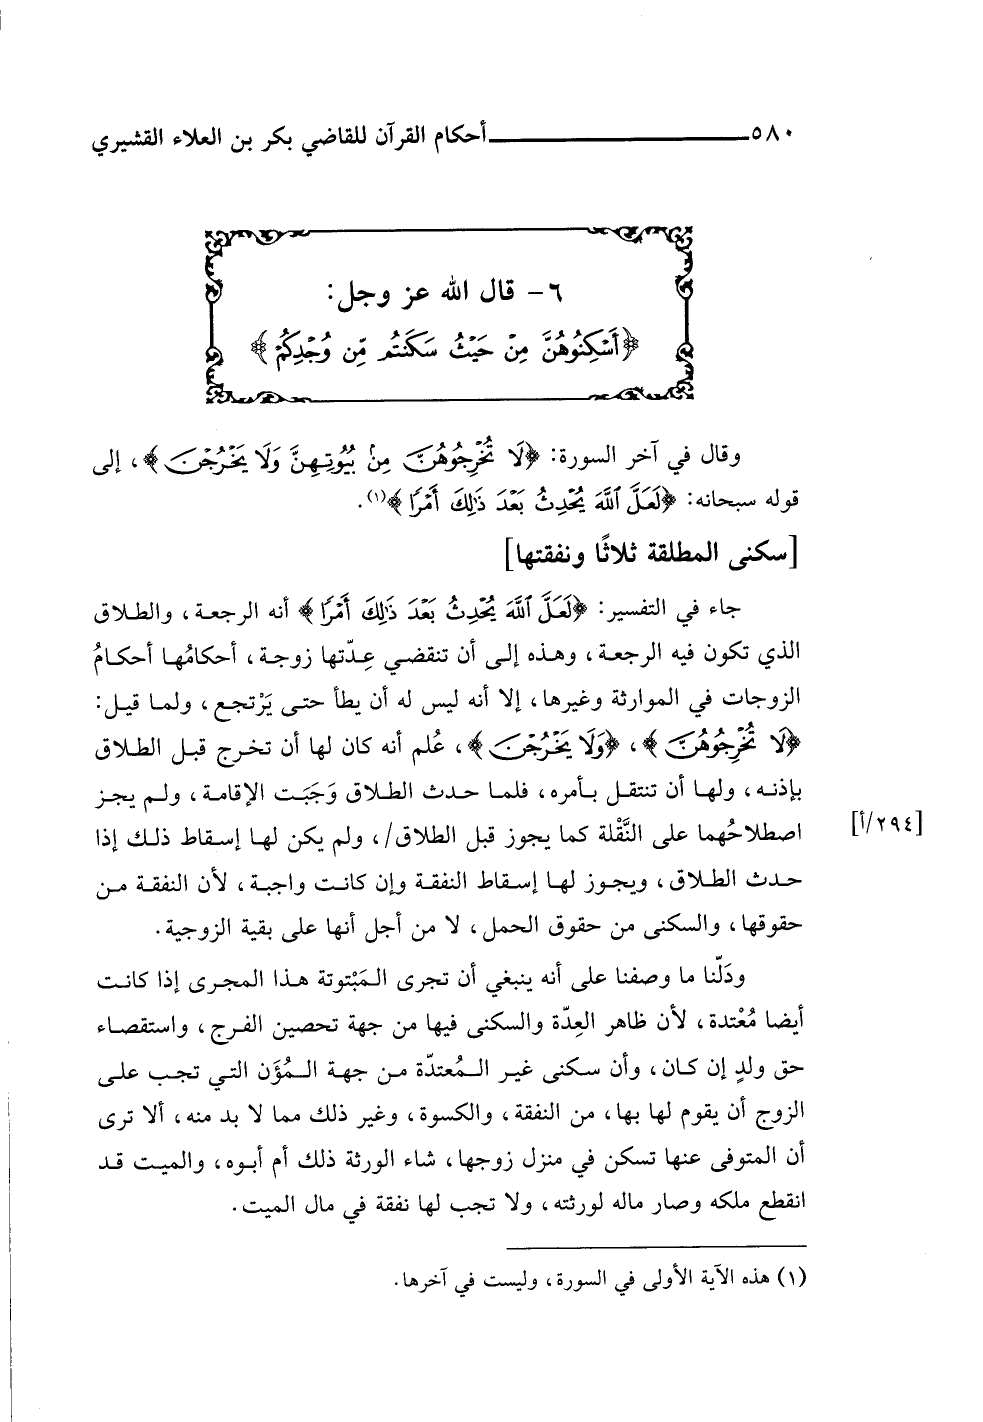 ٥٨٠ أحكام القرآن للقاضي بكر بن العلاء القشيري
٦- قال الله عز وجل:
﴿أَسْكِنُوهُنَّ مِنْ حَيْثُ سَكَنتُم مِّن وُجْدِكُمْ﴾
وقال في آخر السورة: ﴿لَا تُخْرِجُوهُنَّ مِنۢ بُيُوتِهِنَّ وَلَا يَخْرُجْنَ﴾، إلى
قوله سبحانه: ﴿لَعَلَّ ٱللَّهَ يُحْدِثُ بَعْدَ ذَٰلِكَ أَمْرًا﴾(١).
[سكنى المطلقة ثلاثًا ونفقتها]
جاء في التفسير: ﴿لَعَلَّ ٱللَّهَ يُحْدِثُ بَعْدَ ذَٰلِكَ أَمْرًا﴾ أنه الرجعة، والطلاق
الذي تكون فيه الرجعة، وهذه إلى أن تنقضي عِدّتها زوجة، أحكامُها أحكامُ
الزوجات في الموارثة وغيرها، إلا أنه ليس له أن يطأ حتى يَرْتجع، ولما قيل:
﴿لَا تُخْرِجُوهُنَّ﴾، ﴿وَلَا يَخْرُجْنَ﴾، عُلم أنه كان لها أن تخرج قبل الطلاق
بإذنه، ولها أن تنتقل بأمره، فلما حدث الطلاق وَجَبَت الإقامة، ولم يجز
اصطلاحُهما على النَّقْلة كما يجوز قبل الطلاق/، ولم يكن لها إسقاط ذلك إذا [٢٩٤/أ]
حدث الطلاق، ويجوز لها إسقاط النفقة وإن كانت واجبة، لأن النفقة من
حقوقها، والسكنى من حقوق الحمل، لا من أجل أنها على بقية الزوجية.
ودَلّنا ما وصفنا على أنه ينبغي أن تجرى المَبْتوتة هذا المجرى إذا كانت
أيضا مُعْتدة، لأن ظاهر العِدّة والسكنى فيها من جهة تحصين الفرج، واستقصاء
حق ولدٍ إن كان، وأن سكنى غير المُعتدّة من جهة المُؤَن التي تجب على
الزوج أن يقوم لها بها، من النفقة، والكسوة، وغير ذلك مما لا بد منه، ألا ترى
أن المتوفى عنها تسكن في منزل زوجها، شاء الورثة ذلك أم أبوه، والميت قد
انقطع ملكه وصار ماله لورثته، ولا تجب لها نفقة في مال الميت.
(١) هذه الآية الأولى في السورة، وليست في آخرها.